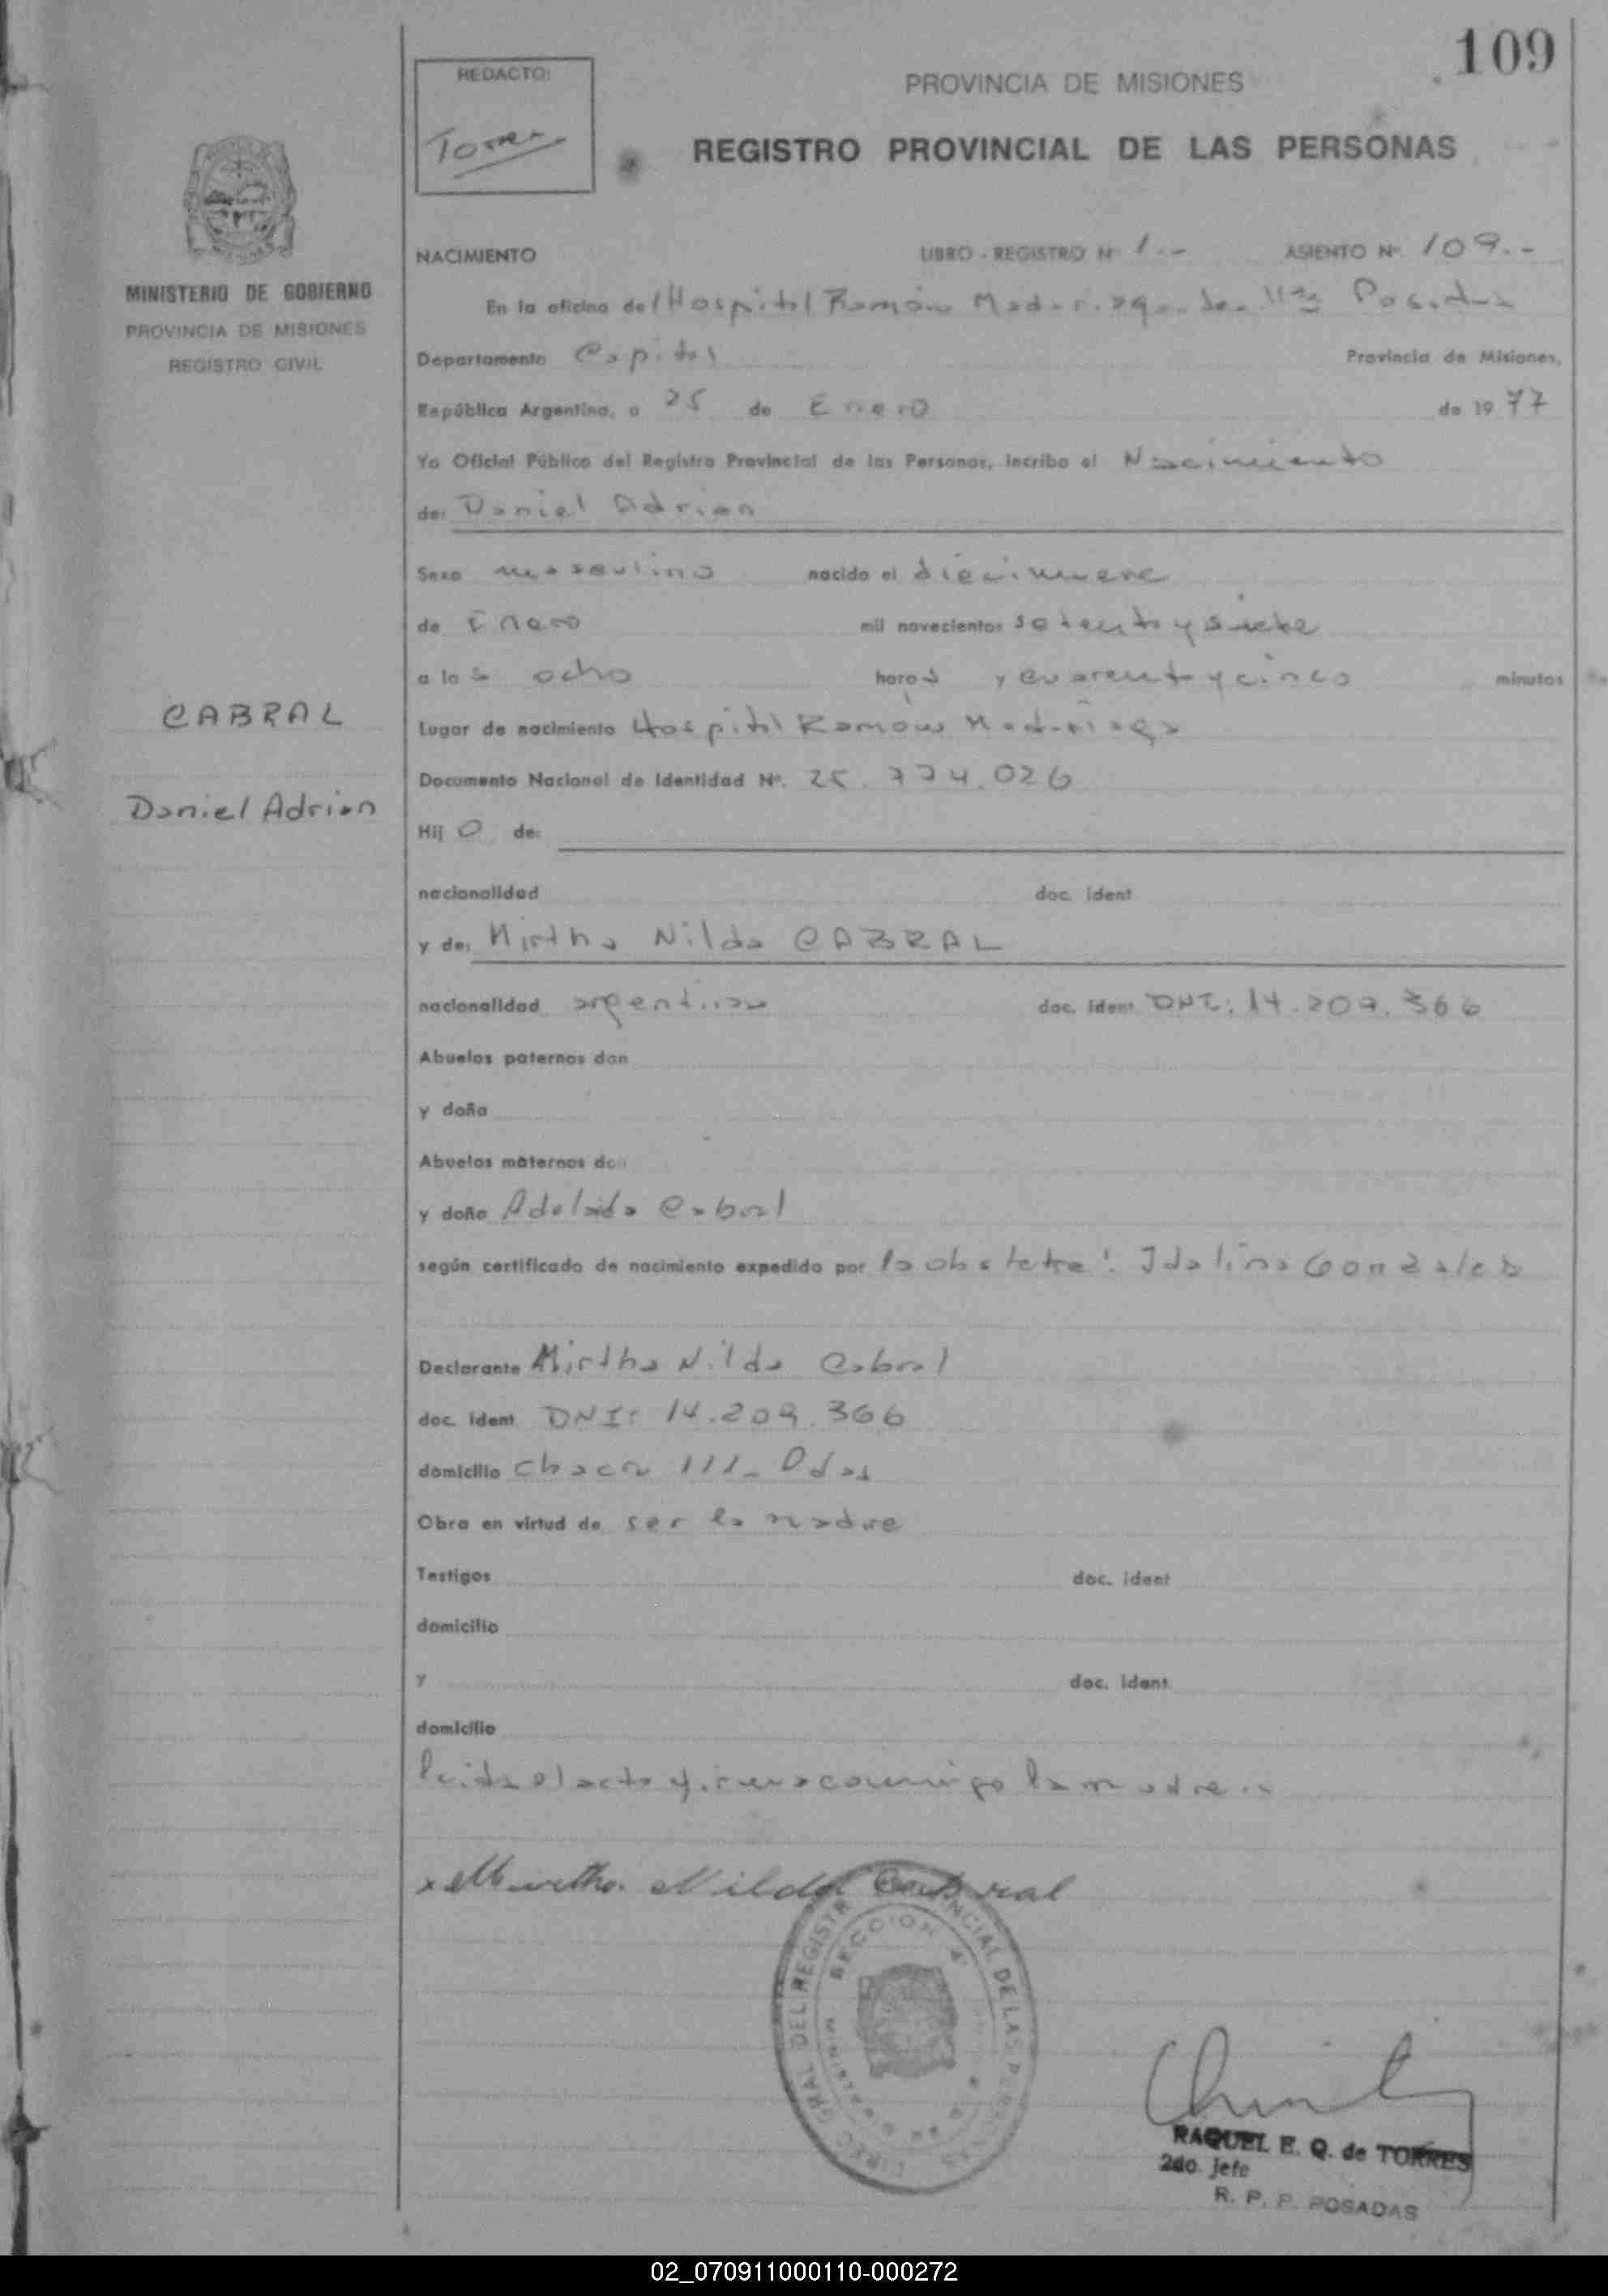 109
REDACTO:
Torres
PROVINCIA DE MISIONES
REGISTRO PROVINCIAL DE LAS PERSONAS
MINISTERIO DE GOBIERNO
PROVINCIA DE MISIONES
REGISTRO CIVIL
NACIMIENTO LIBRO - REGISTRO Nº 1.-- ASIENTO Nº 109.--
En la oficina del Hospital Ramón Madariaga de Posadas
Departamento Capital Provincia de Misiones,
República Argentina, a 25 de Enero de 1977
Yo Oficial Público del Registro Provincial de las Personas, incribo el Nacimiento
de: Daniel Adrian
Sexo masculino nacido el diecinueve
de Enero mil novecientos setenta y siete
a las ocho horas y cuarenta y cinco minutos
CABRAL
Lugar de nacimiento Hospital Ramón Madariaga
Documento Nacional de Identidad Nº. 25.774.026
Daniel Adrian
Hijo de:
nacionalidad doc. ident
y de: Mirtha Nilda CABRAL
nacionalidad argentina doc. ident DNI: 14.209.366
Abuelos paternos don
y doña
Abuelos maternos don
y doña Adelaida Cabral
según certificado de nacimiento expedido por la obstetra: Idalina Gonzalez
Declarante Mirtha Nilda Cabral
doc. ident. DNI: 14.209.366
domicilio Chacra 111_ Pdas
Obra en virtud de ser la madre
Testigos doc. ident
domicilio
y doc. ident.
domicilio
leida el acta firma conmigo la madre
x Mirtha Nilda Cabral
DIREC. GRAL DEL REGISTRO PROVINCIAL DE LAS PERSONAS
SECCION
RAQUEL E. Q. de TORRES
2do. Jefe
R. P. P. POSADAS
02_070911000110-000272